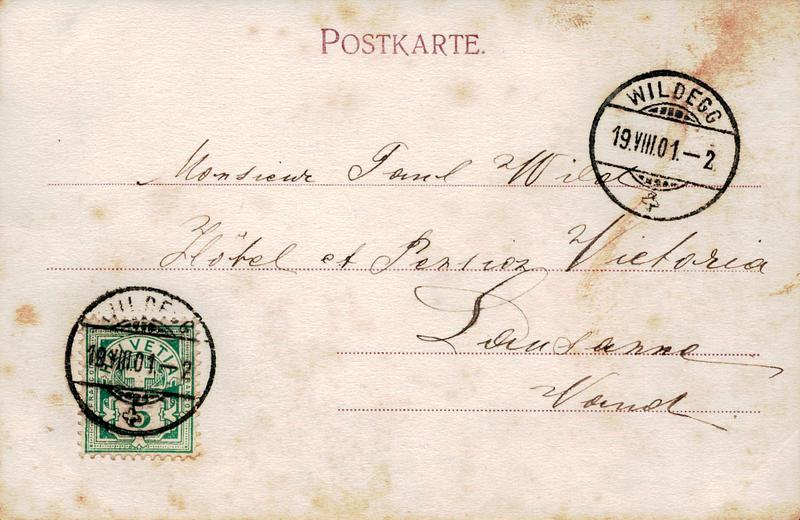 POSTKARTE.
WILDEGG
19.VIII.01.–2
Monsieur Paul Wild
Hôtel et Pension Victoria
Lausanne
Vaud
WILDEGG
HELVETIA
19.VIII.01.–2
5